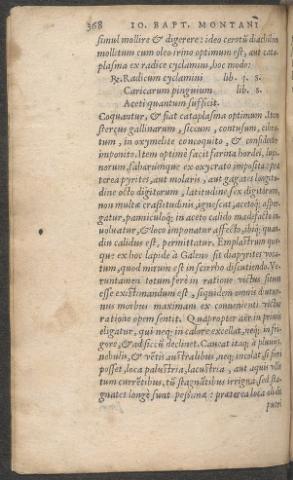 368 IO. BAPT. MONTANI
simul mollire & digerere: ideo cerotũ diachilon
mollitum cum oleo irino optimum est, aut cata-
plasma ex radice cyclamini, hoc modo:
℞. Radicum cyclamini lib. s.
Caricarum pinguium lib. s.
Aceti quantum sufficit.
Coquantur, & fiat cataplasma optimum. Item
stercus gallinarum, siccum, contusum, cibra-
tum, in oxymelite concoquito, & confidenter
imponito. Item optimè facit farina hordei, lupi-
norum, fabarumque ex oxycrato imposita: præ-
terea pyrites, aut molaris, aut gagates longitu-
dine octo digitorum, latitudine sex digitorum,
non multæ crassitudinis, ignescat, acetoq́; asper-
gatur, panniculoq́; in aceto calido madefacto in-
voluatur, & loco imponatur affecto, ibiq́; quan-
din calidus est, permittatur. Emplastrum quo-
que ex hoc lapide à Galeno fit diapyrites voca-
tum, quod mirum est in scirrho discutiendo. Ve-
runtamen totum ferè in ratione victus situm
esse existimandum est, siquidem omnis diutur-
nus morbus maximam ex conuenienti victus
ratione opem sentit. Quapropter aër in primis
eligatur, qui neq́; in calore excellat, neq́; in fri-
gore, & ad siccũ declinet. Caueat itaq́; à pluuijs,
nebulis, & vẽtis australibus, neq́; incolat, si fieri
posset, loca palustria, lacustria, aut aquis
tum currẽtibus, tũ stagnãtibus irrigua, sed sta-
gnates longè sunt pessimæ: præterea loca
putri